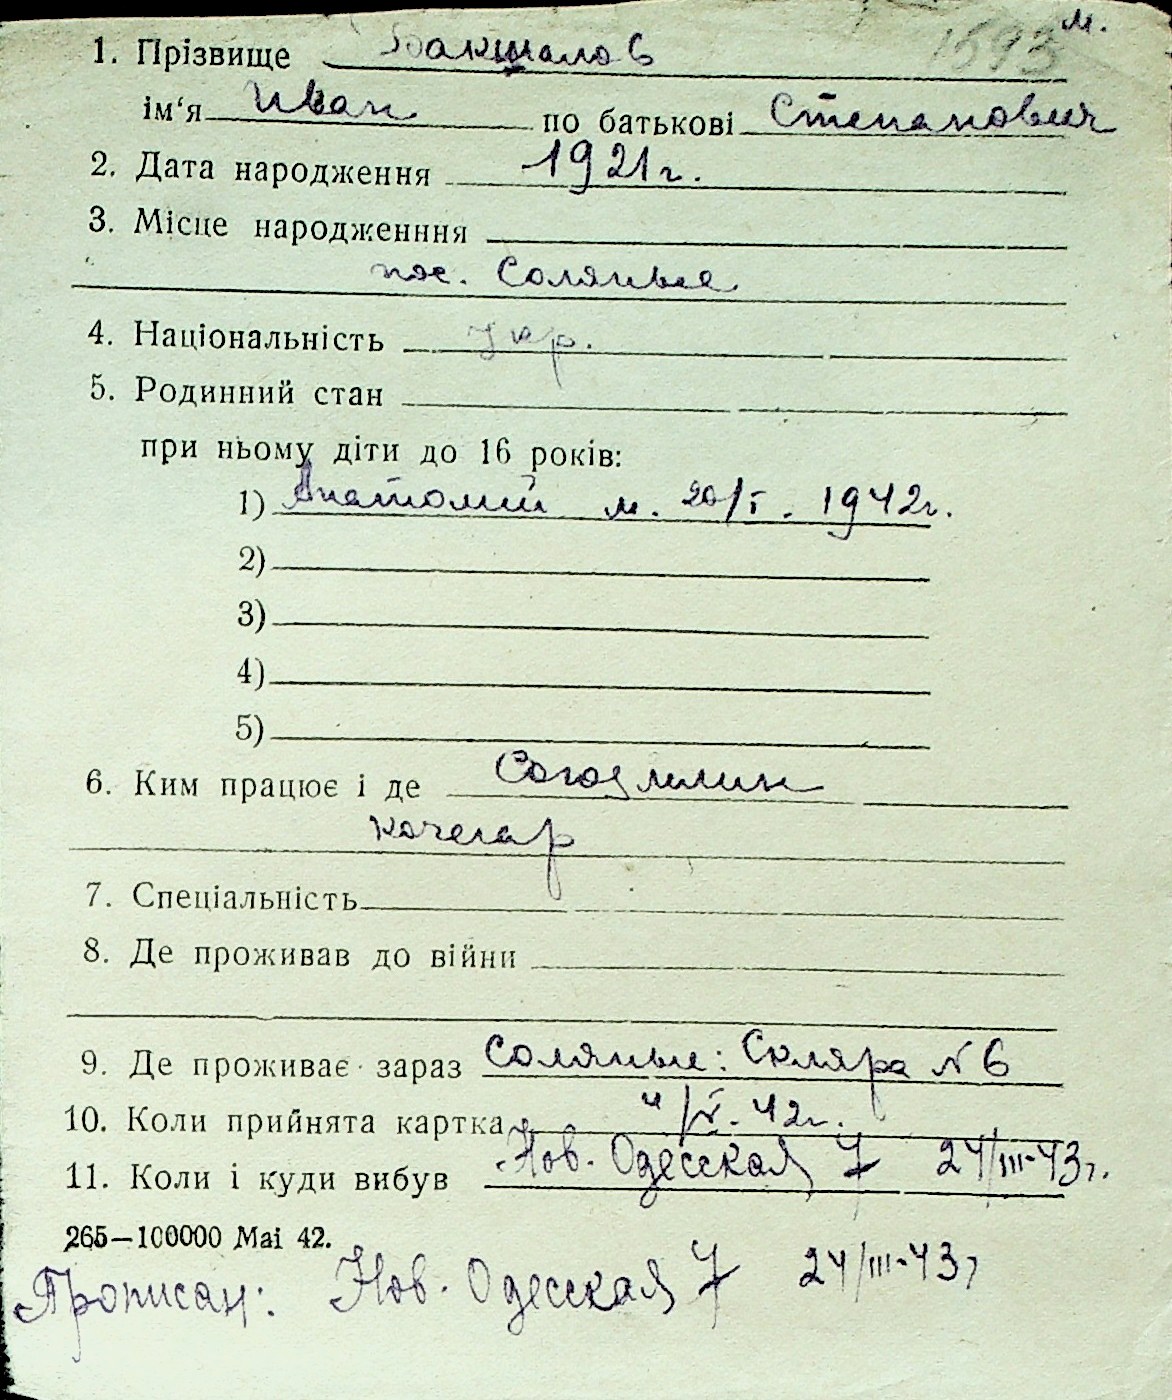 1593 м.
1. Прізвище Бакшалов
ім‘я Иван по батькові Степанович
2. Дата народження 1921г.
3. Місце народженння
пос. Соляные
4. Національність Укр.
5. Родинний стан
при ньому діти до 16 років:
1) Анатолий м. 20/I. 1942г.
2)
3)
4)
5)
6. Ким працює і де Союзмлин
кочегар
7. Спеціальність
8. Де проживав до війни
9. Де проживає зараз Соляные: Скляра № 6
10. Коли прийнята картка 4/V. 42г.
11. Коли і куди вибув Нов. Одесская 7 24/III-43г.
265—100000 Mai 42.
Прописан: Нов. Одесская 7 24/III-43г